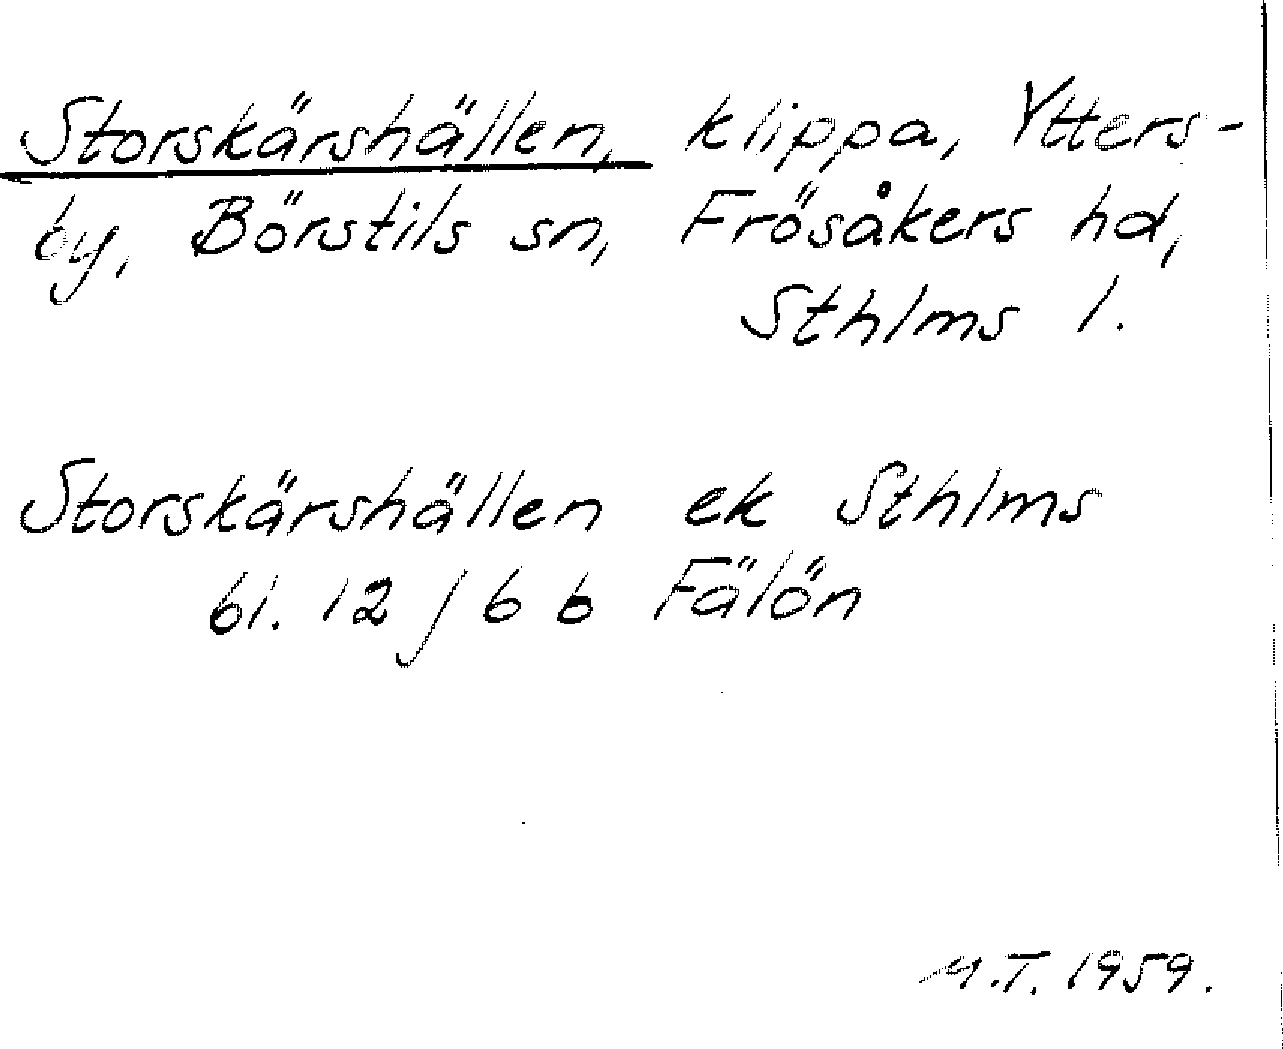 Storskärshällen, klippa, Ytters-
by, Börstils sn, Frösåkers hd,
Sthlms l.
Storskärshällen ek Sthlms
bl. 12 j 6 b Fälön
M.T. 1959.